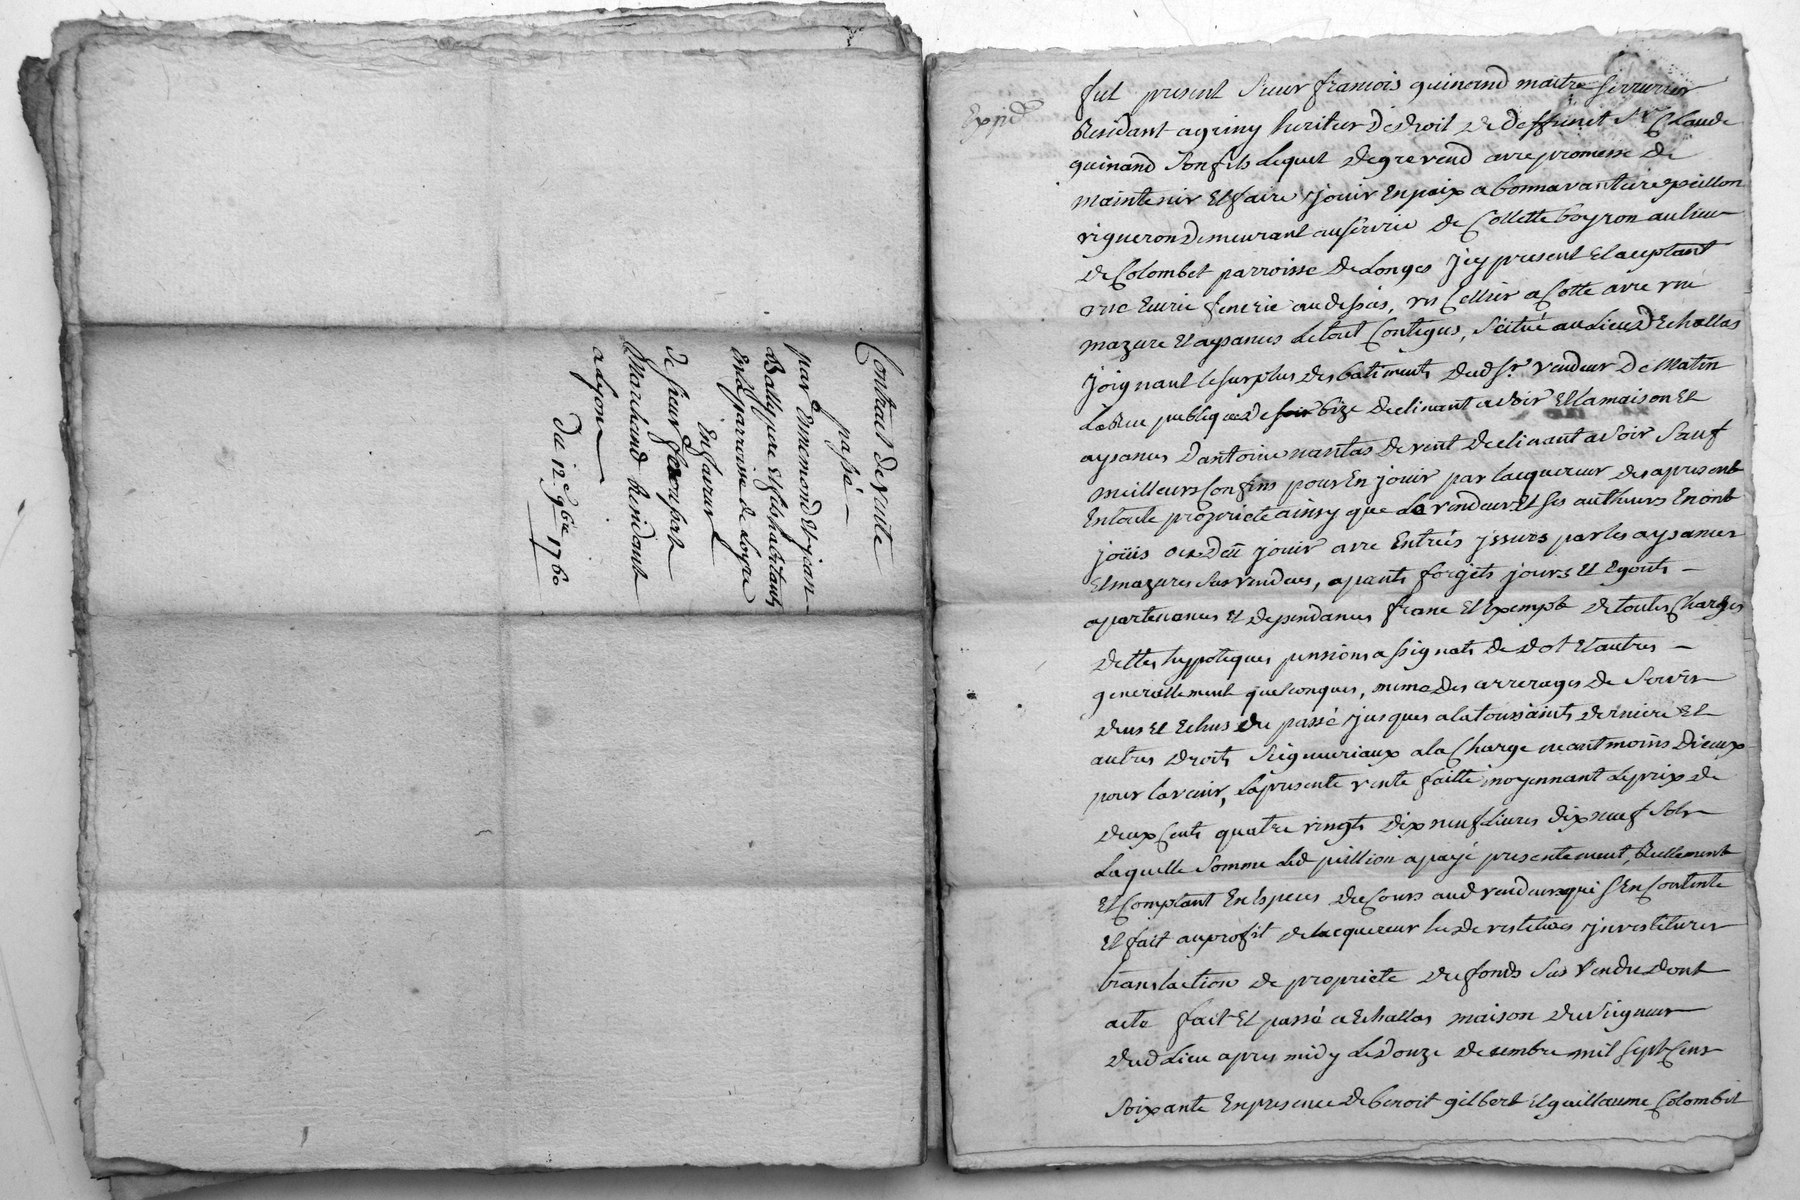 Contrat de vente
passé
par Ennemond et jean
Bally pere et fils habitants
En la parroisse de Loyre
En faveur
de sieur
Marchand Residant
a Lyon
du 12e 9bre 1760
Expié
fut present sieur francois guinand maitre serrurier
Residant a griny heritier de droit de deffunct Sr Claude
guinand son fils Lequel de gre vend avec promesse de
maintenir Et faire jouir En paix a bonnavanture peillon
vigneron demeurant au service de Collette boyron au lieu
de Colombet parroisse de Longes jcy present et aceptant
une Eurie fenerie au dessus, un Cellier a Cotte avec une
mazure et aysances le tout Contigus, scitué au Lieu d'Echallas
joignant le surplus des batiments dud sr vendeur de Matin
la Rue publique de bize declinant a soir et la maison et
aysances d'antoine nantas de vent declinant a soir sauf
meilleurs Confins pour En jouir par lacquereur des apresent
En toute proprieté ainsy que Le vendeur et ses autheurs En ont
joüis ou dеü jouir avec Entrés jssues par les aysances
et mazures sus vendues, apants forgets jours et Egouts
apartenances et dependances franc et Exempt de toutes Charges
dettes hypoteques pensions assignats de dot et autres
generallement quelconques, meme des arrerages de servis
dus et Echus du passé jusques a la toussaints derniere et
autres droits seigneuriaux a la Charge neantmoins d'iceux
pour lavenir, La presente vente faitte moyennant le prix de
deux Cents quatre vingts dix neuf Livres dix neuf sols
Laquelle somme led peillion a payé presentement, Reellement
et Comptant En Especes de Cours aud vendeur qui s'En Contente
et fait au profit de lacquereur les devestitures jnvestitures
translation de proprieté du fonds sus vendu dont
acte fait et passé a Echallas maison du seigneur
dud Lieu apres midy le douze decembre mil sept Cens
soixante En presence de benoit gilbert et guillaume Colombet